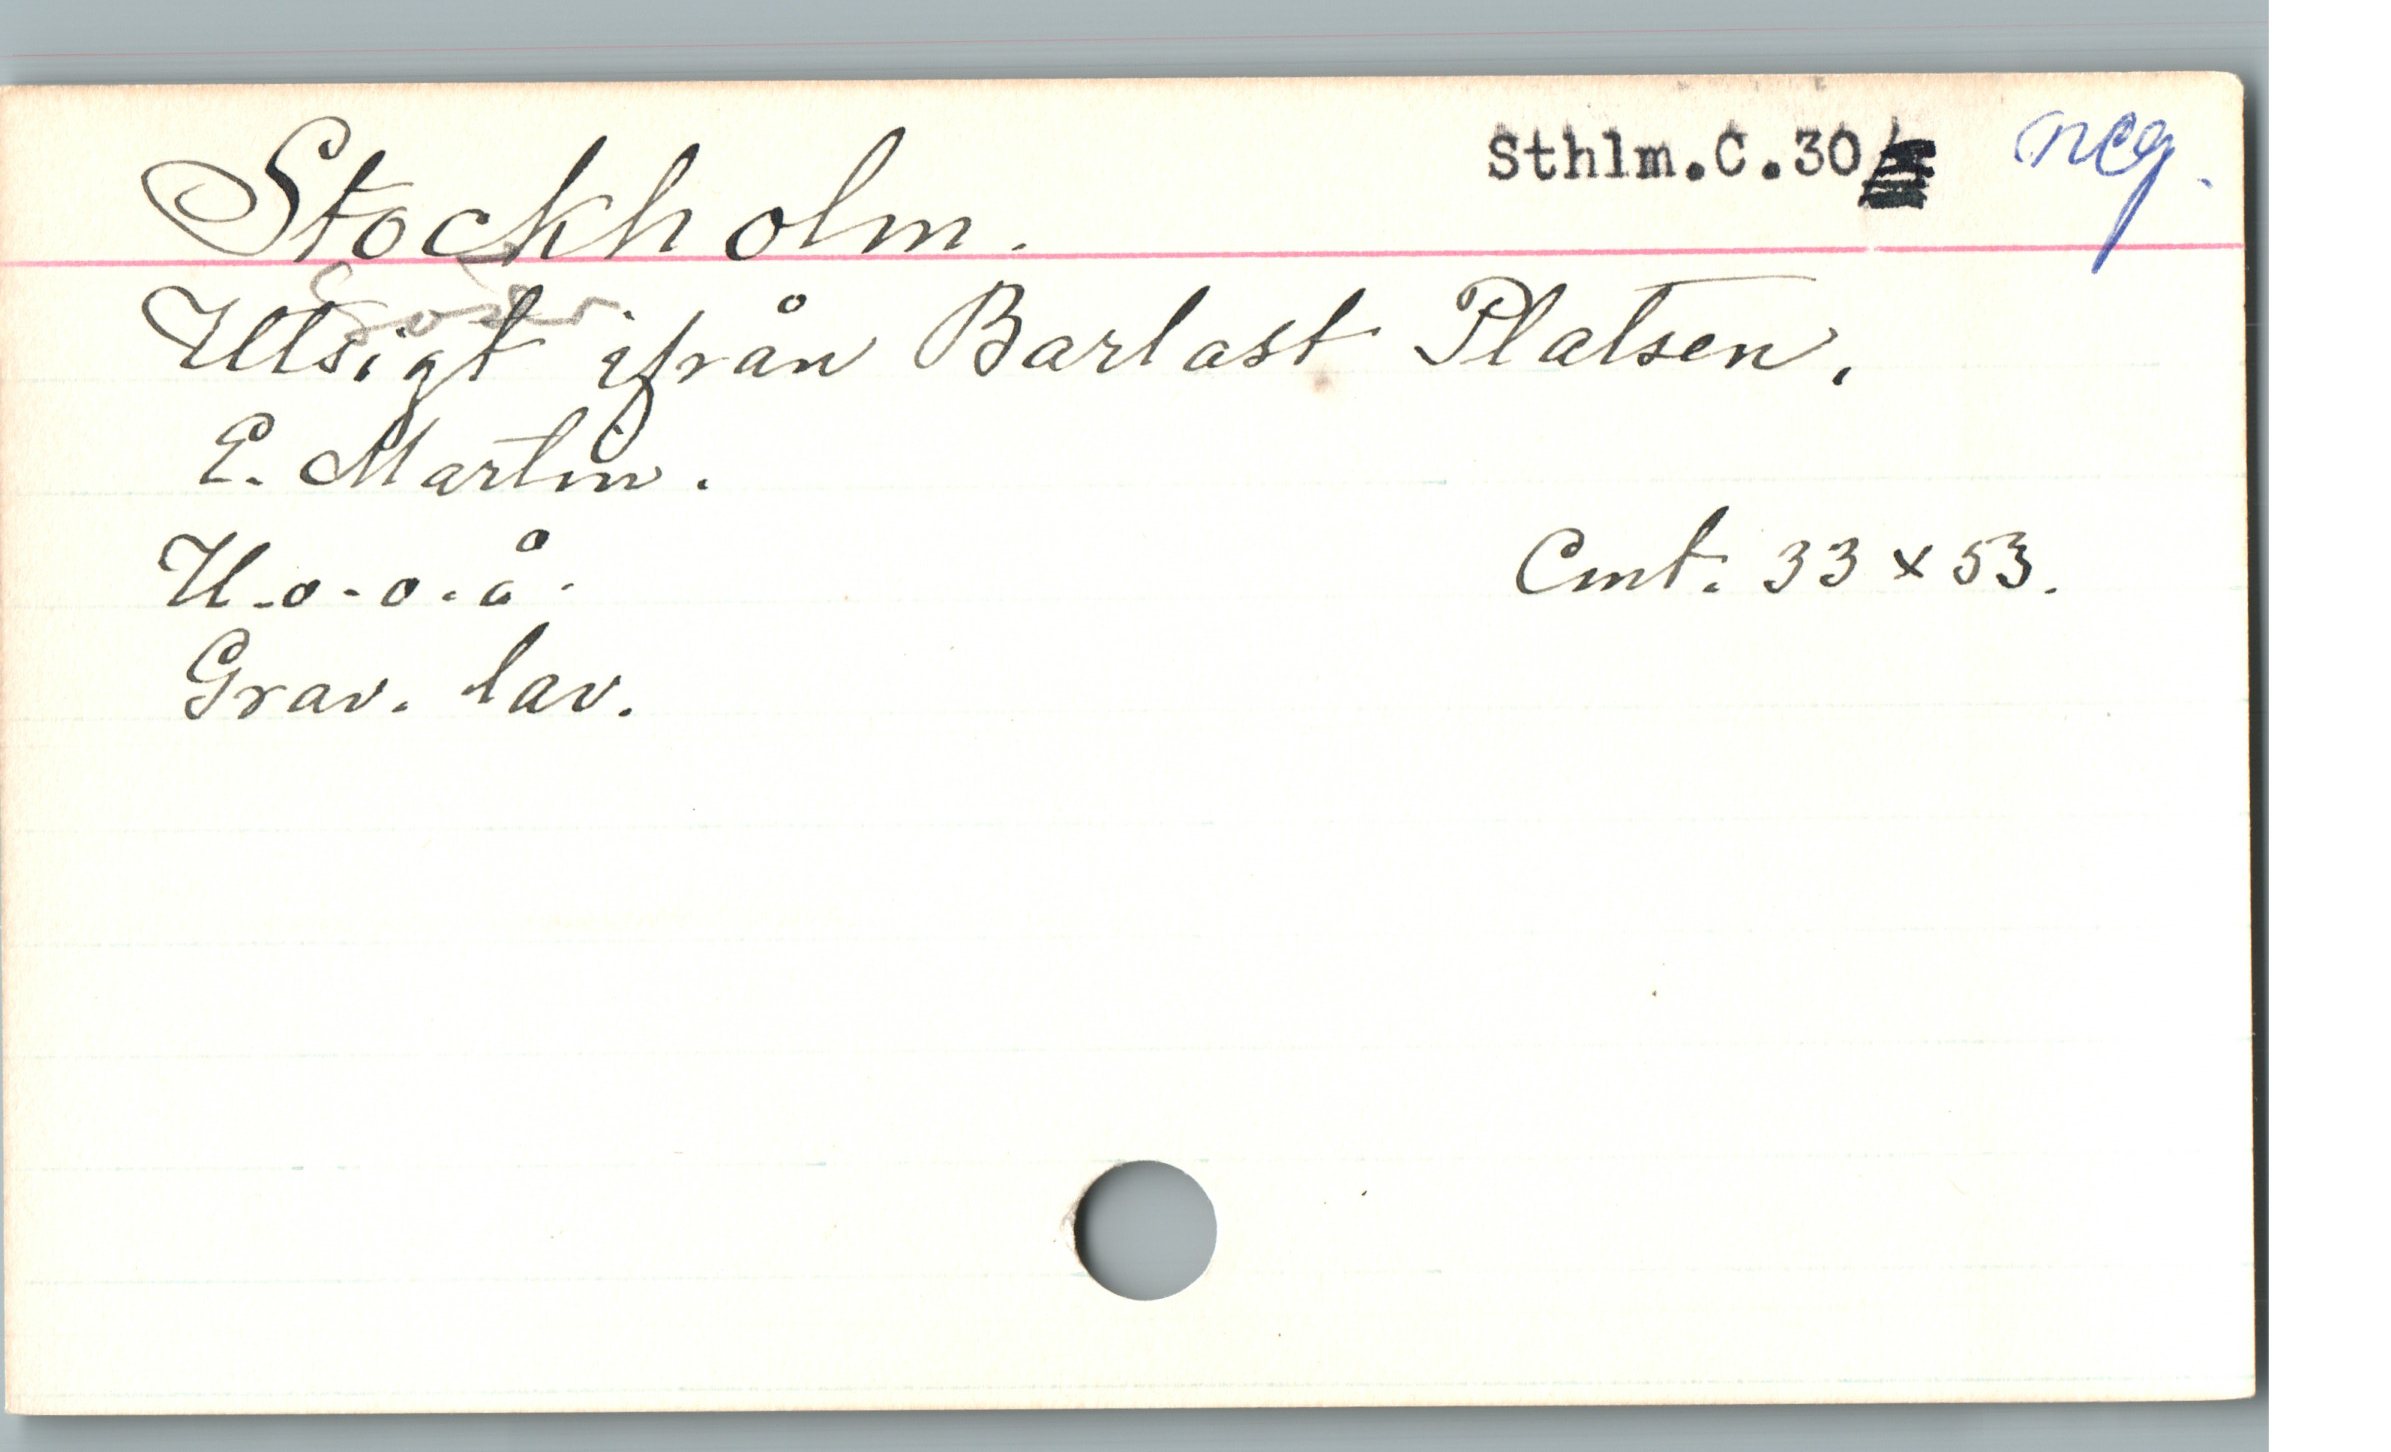 Stockholm. Sthlm.C.30 neg.
Söder
Utsigt ifrån Barlast Platsen.
E. Martin.
U.o.o.å. Cmt. 33 x 53.
Grav. lav.